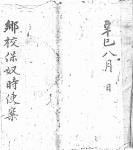 辛巳八月 日
鄕校保奴時使案